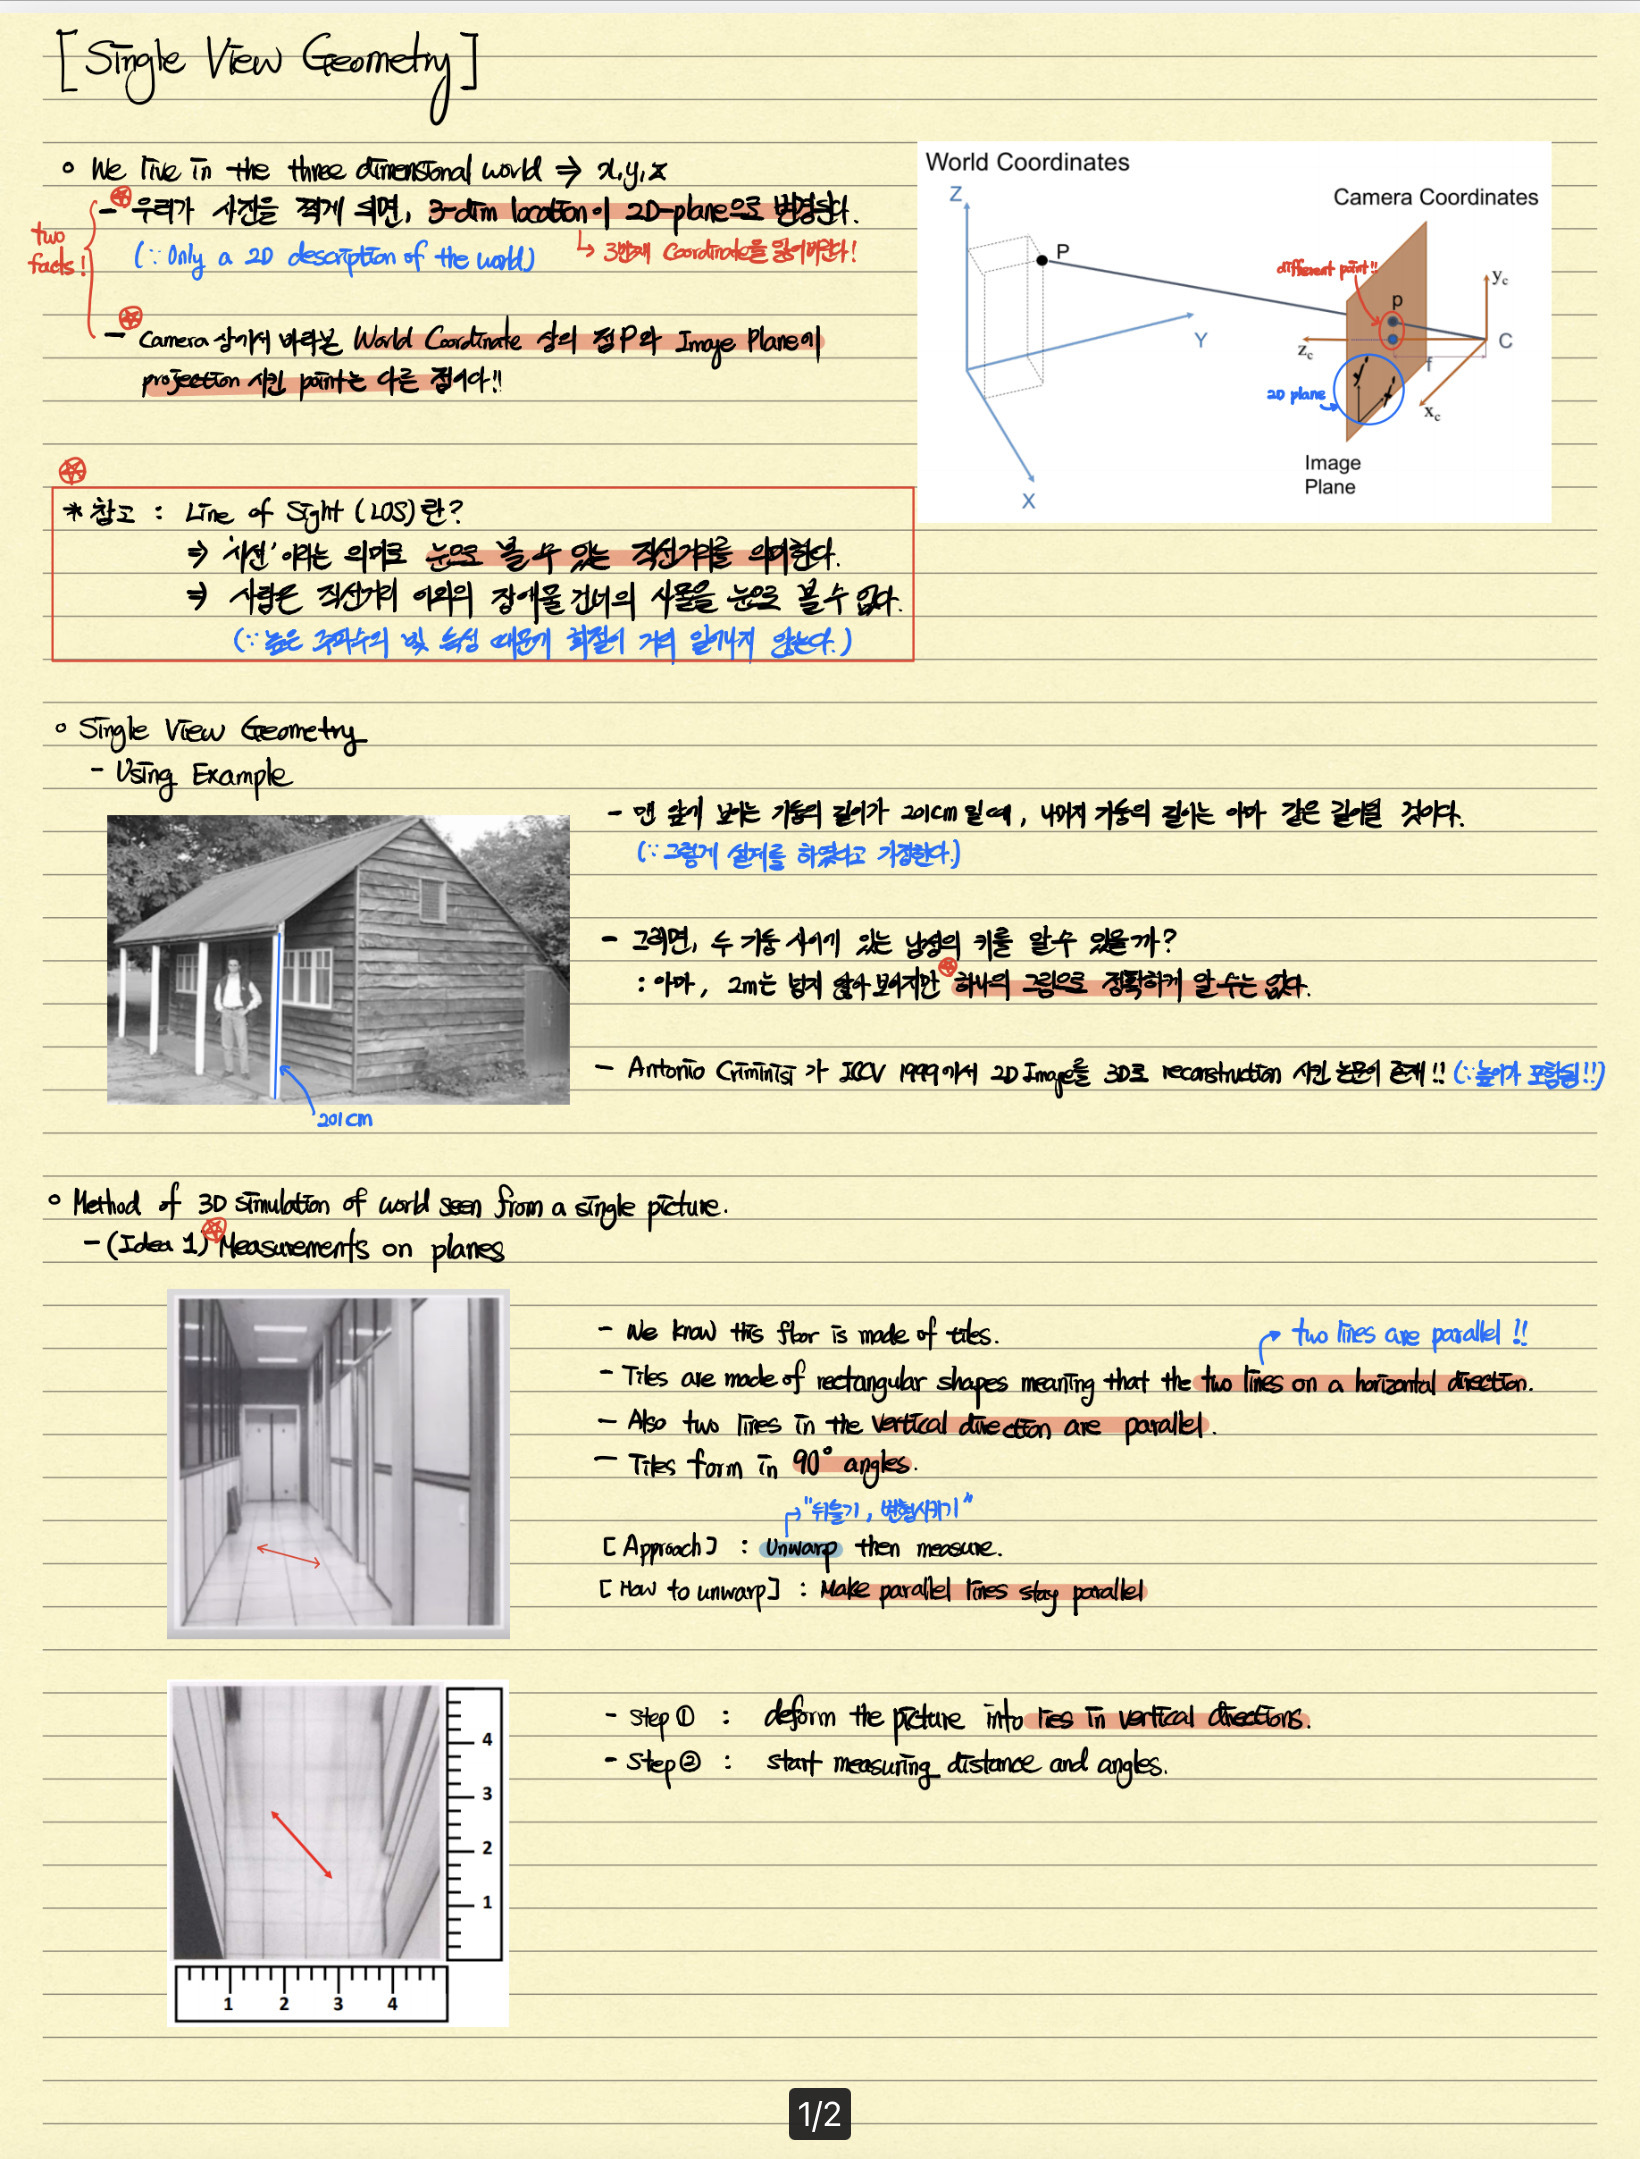 [Single View Geometry]
○ We live in the three dimensional world ⇒ x,y,z
two facts!
- 우리가 사진을 찍게 되면, 3-dim location이 2D-plane으로 변경된다.
(∵ Only a 2D description of the world)
↳ 3번째 Coordinate을 잃어버린다!
- Camera 상에서 바라본 World Coordinate 상의 점P와 Image Plane에
projection 시킨 point는 다른 점이다!!
World Coordinates
Camera Coordinates
Z
P
Y
X
different point!!
p
yc
zc
C
f
xc
2D plane
y
x
Image
Plane
* 참고 : Line of Sight (LOS)란?
⇒ '시선'이라는 의미로 눈으로 볼 수 있는 직선거리를 의미한다.
⇒ 사람은 직선거리 이외의 장애물 건너의 사물을 눈으로 볼 수 없다.
(∵ 높은 주파수의 빛 특성 때문에 회절이 거의 일어나지 않는다.)
○ Single View Geometry
- Using Example
- 맨 앞에 보이는 기둥의 길이가 201cm 일 때, 나머지 기둥의 길이는 아마 같은 길이일 것이다.
(∵ 그렇게 설계를 하였다고 가정한다.)
- 그러면, 두 기둥 사이에 있는 남성의 키를 알 수 있을까?
: 아마, 2m는 넘지 않아 보이지만 하나의 그림으로 정확하게 알 수는 없다.
- Antonio Criminisi 가 ICCV 1999에서 2D Image를 3D로 reconstruction 시킨 논문이 존재!! (∵ 높이가 포함됨!!)
201cm
○ Method of 3D simulation of world seen from a single picture.
- (Idea 1) Measurements on planes
- We know this floor is made of tiles.
two lines are parallel!!
- Tiles are made of rectangular shapes meaning that the two lines on a horizontal direction.
- Also two lines in the vertical direction are parallel.
- Tiles form in 90° angles.
"뒤틀기, 변형시키기"
[Approach] : Unwarp then measure.
[How to unwarp] : Make parallel lines stay parallel
- Step ① : deform the picture into lies in vertical directions.
- Step ② : start measuring distance and angles.
4
3
2
1
1 2 3 4
1/2